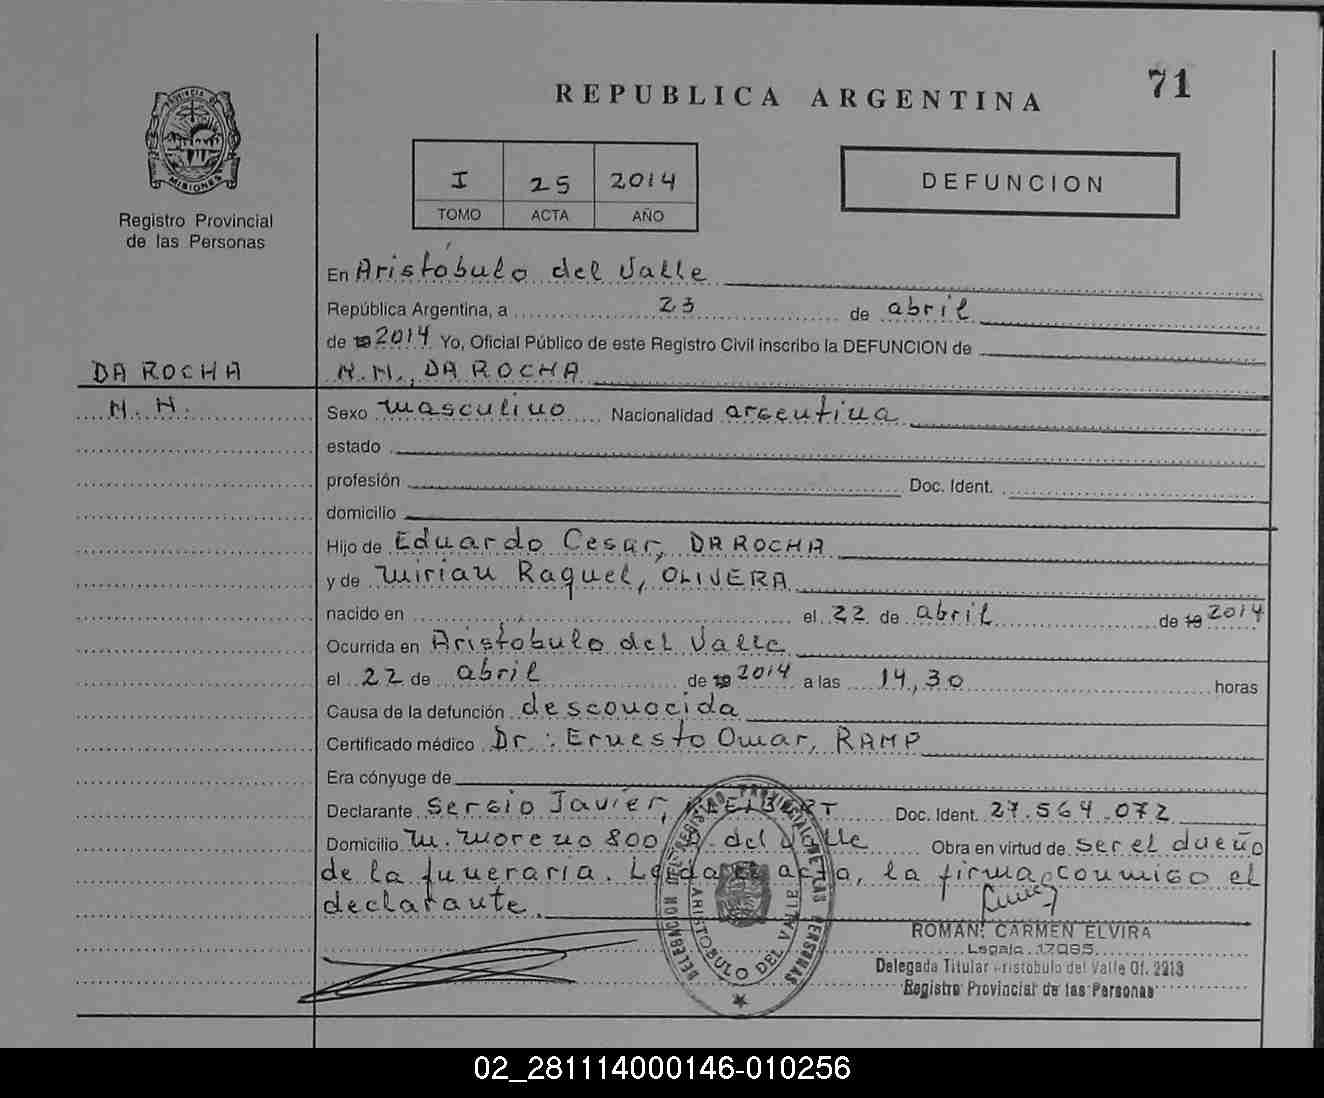 71
REPUBLICA ARGENTINA
PROVINCIA DE
MISIONES
Registro Provincial
de las Personas
I 25 2014
TOMO ACTA AÑO
DEFUNCION
En Aristóbulo del Valle
República Argentina, a 23 de abril
de 19 2014 Yo, Oficial Público de este Registro Civil inscribo la DEFUNCION de
DA ROCHA
N.N., DA ROCHA
N.N.
Sexo masculino Nacionalidad argentina
estado
profesión Doc. Ident.
domicilio
Hijo de Eduardo Cesar, DA ROCHA
y de Mirian Raquel, OLIVERA
nacido en el 22 de abril de 19 2014
Ocurrida en Aristobulo del Valle
el 22 de abril de 19 2014 a las 14,30 horas
Causa de la defunción desconocida
Certificado médico Dr.: Ernesto Omar, RAMP
Era cónyuge de
Declarante Sergio Javier, Doc. Ident. 27.564.072
Domicilio M. Moreno 800 A. del Valle Obra en virtud de ser el dueño
de la funeraria. Leida el acta, la firma conmigo el
declarante.
DELEGACION DEL REGISTRO PROVINCIAL DE LAS PERSONAS
ARISTOBULO DEL VALLE
ROMAN, CARMEN ELVIRA
Legajo 17095
Delegada Titular Aristobulo del Valle Of. 2213
Registro Provincial de las Personas
02_281114000146-010256